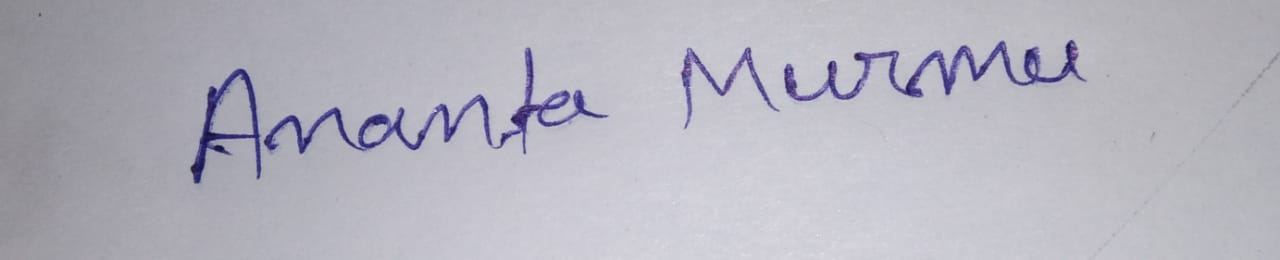 Ananta Murmu